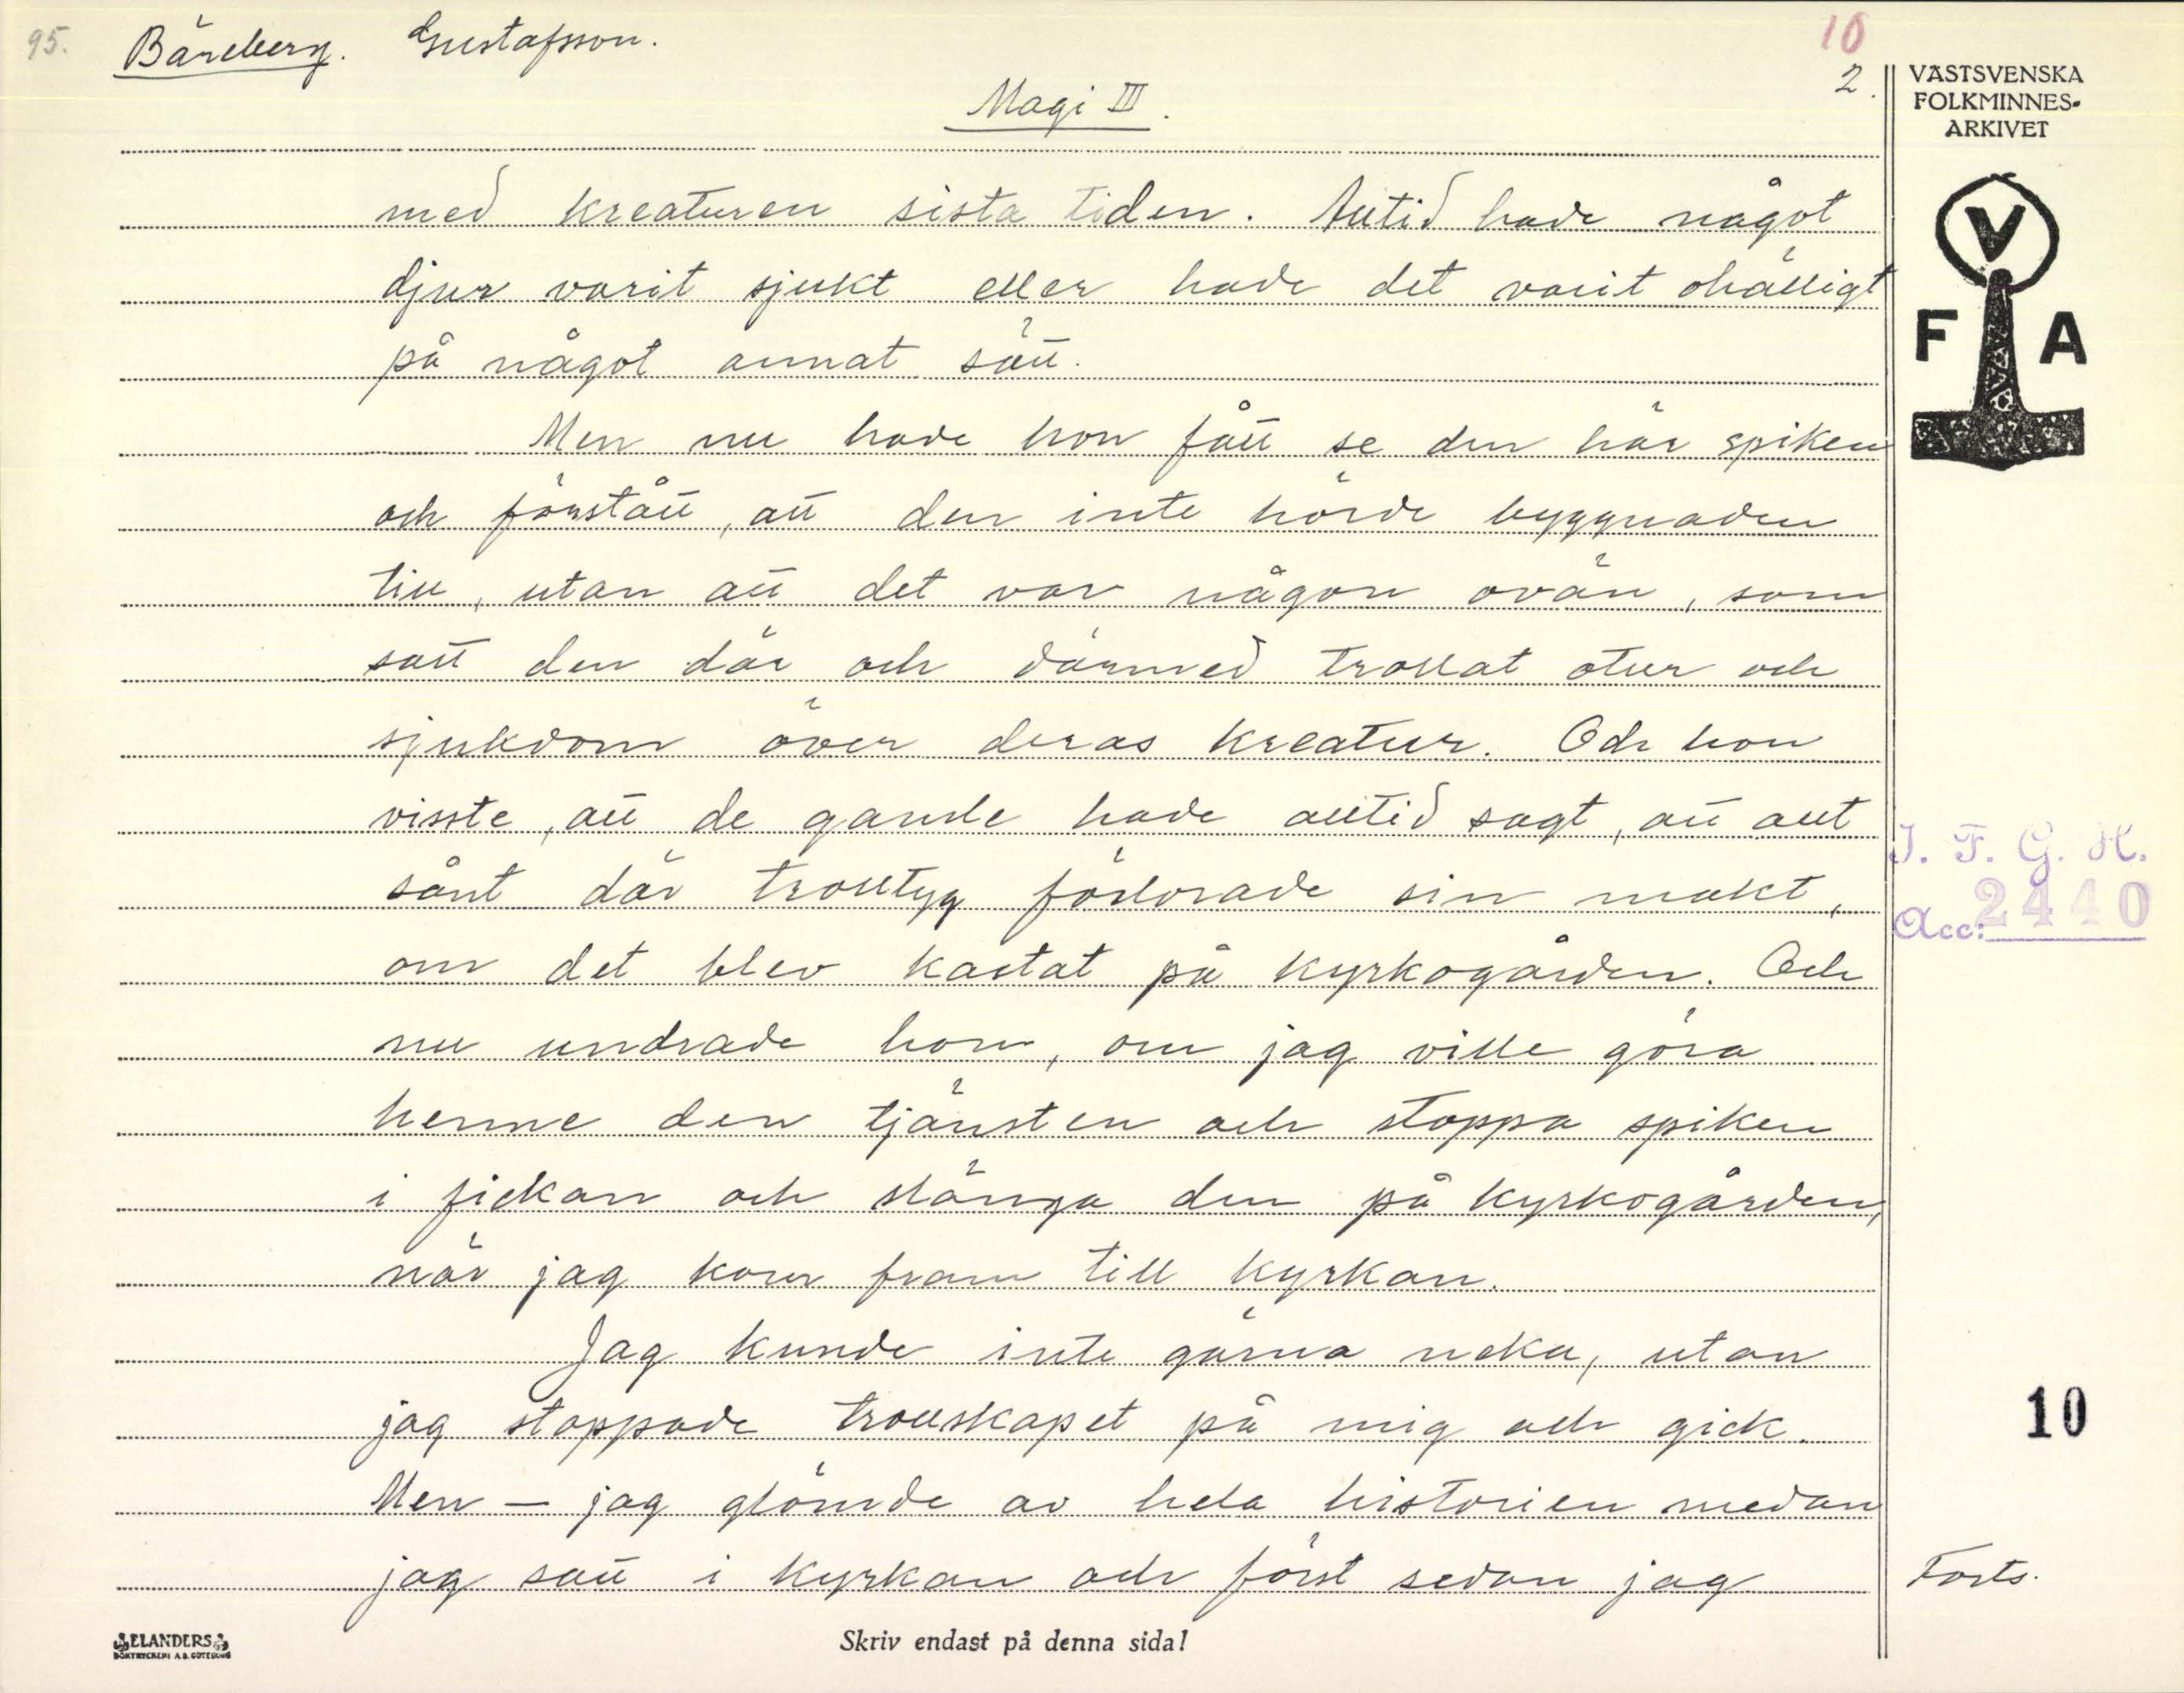 95. Bäreberg. Gustafsson. 10
2.
Magi III.
VÄSTSVENSKA
FOLKMINNES-
ARKIVET
V
F A
med kreaturen sista tiden. Alltid hade något
djur varit sjukt eller hade det varit ohälligt
på något annat sätt.
Men nu hade hon fått se den här spiken
och förstått, att den inte hörde byggnaden
till, utan att det var någon ovän, som
satt den där och därmed trollat otur och
sjukdom över deras kreatur. Och hon
visste, att de gamle hade alltid sagt, att allt
sånt där trolltyg förlorade sin makt,
om det blev kastat på kyrkogården. Och
nu undrade hon, om jag ville göra
henne den tjänsten och stoppa spiken
i fickan och slänga den på kyrkogården,
när jag kom fram till kyrkan.
Jag kunde inte gärna neka, utan
jag stoppade trollskapet på mig och gick.
Men – jag glömde av hela historien medan
jag satt i kyrkan och först sedan jag
I. F. G. H.
Acc: 2440
10
Forts.
ELANDERS
BOKTRYCKERI A.B. GÖTEBORG
Skriv endast på denna sida!